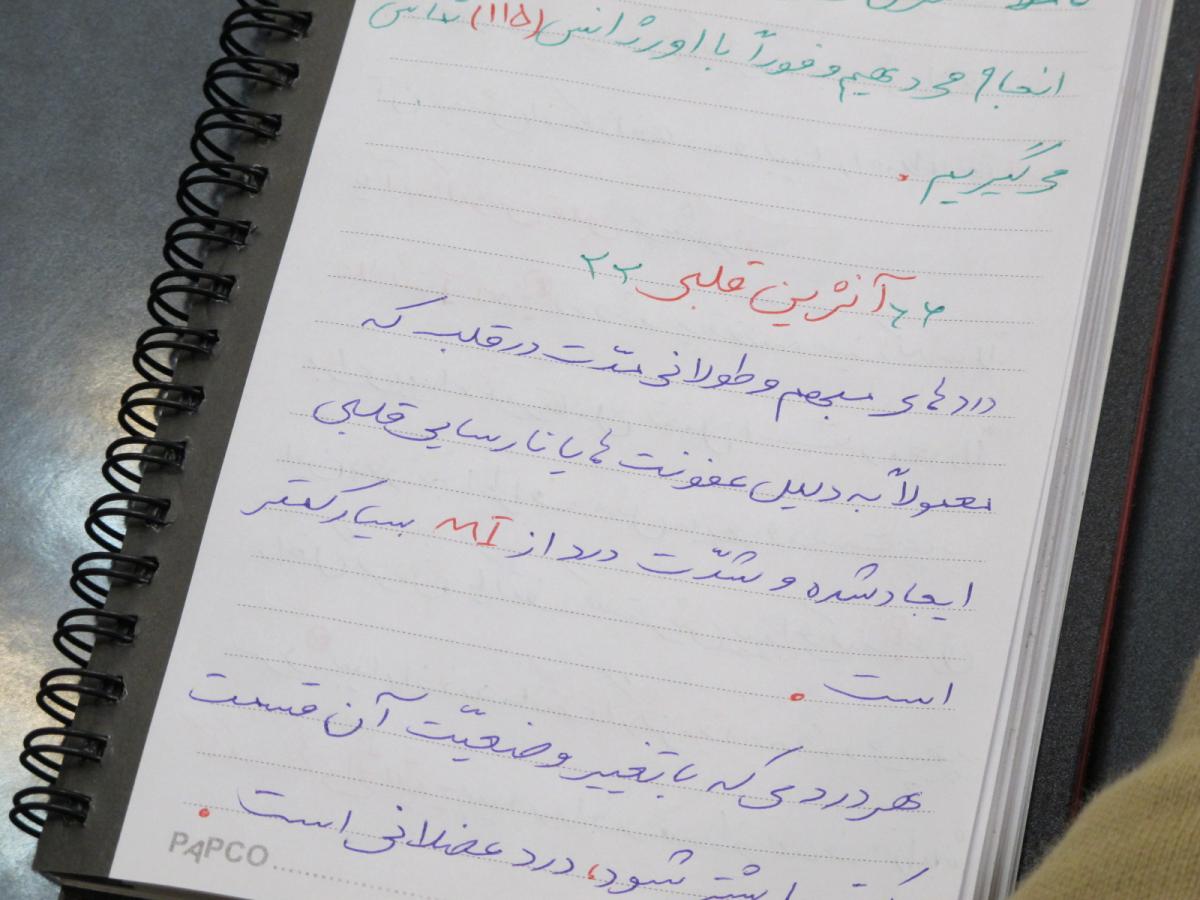 انجام می دهیم و فوراً با اورژانس (۱۱۵) تماس
می گیریم.
«آنژین قلبی»
دردهای مبهم و طولانی مدّت در قلب که
معمولاً به دلیل عفونت ها یا نارسایی قلبی
ایجاد شده و شدّت درد از MI بسیار کمتر
است.
هر دردی که با تغییر وضعیّت آن قسمت
بیشتر شود، درد عضلانی است.
PAPCO